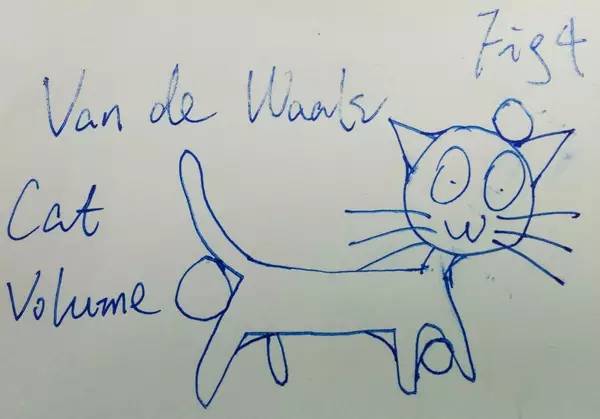 Fig 4
Van de Waals
Cat
Volume